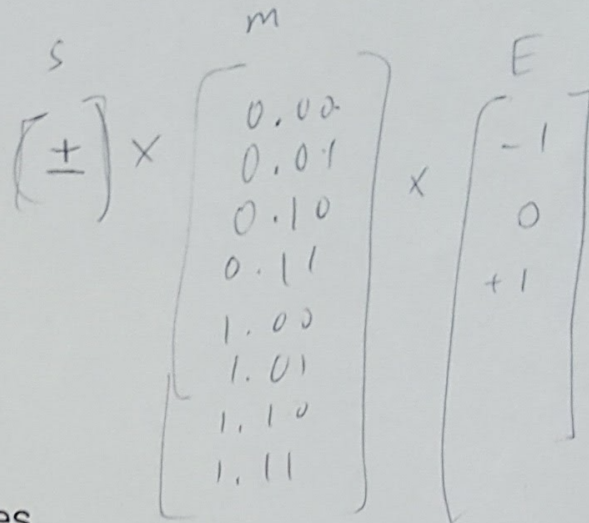 S m E
[±] × [0.00 × [-1
0.01 0
0.10 +1]
0.11
1.00
1.01
1.10
1.11]
es